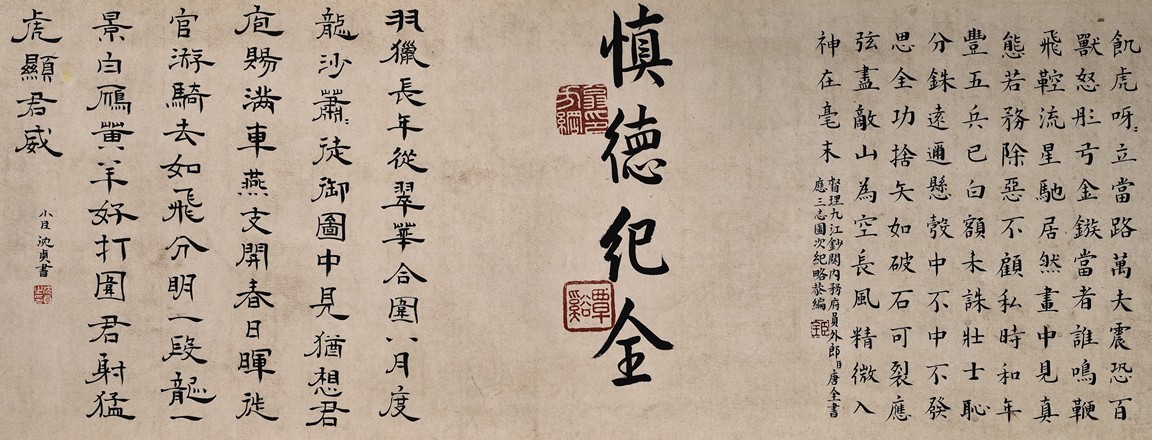 飢虎呀〻立當路萬夫震恐百
獸怒彤弓金鏃當者誰鳴鞭
飛鞚流星馳居然畫中見真
態若務除惡不顧私時和年
豐五兵已白額未誅壯士恥
分銖遠邇懸彀中不中不發
思全功捨矢如破石可裂應
弦盡敵山為空長風精微入
神在毫末
督理九江鈔關內務府員外郎唐全書
應三志圖次紀略恭編
慎德紀全
覃谿
羽獵長年從翠華合圍八月度
龍沙蕭〻徒御圖中見猶想君
庖賜滿車燕支開春日暉從
官游騎去如飛分明一段龍一
景白鴈黃羊好打圍君射猛
虎顯君威
小臣沈書